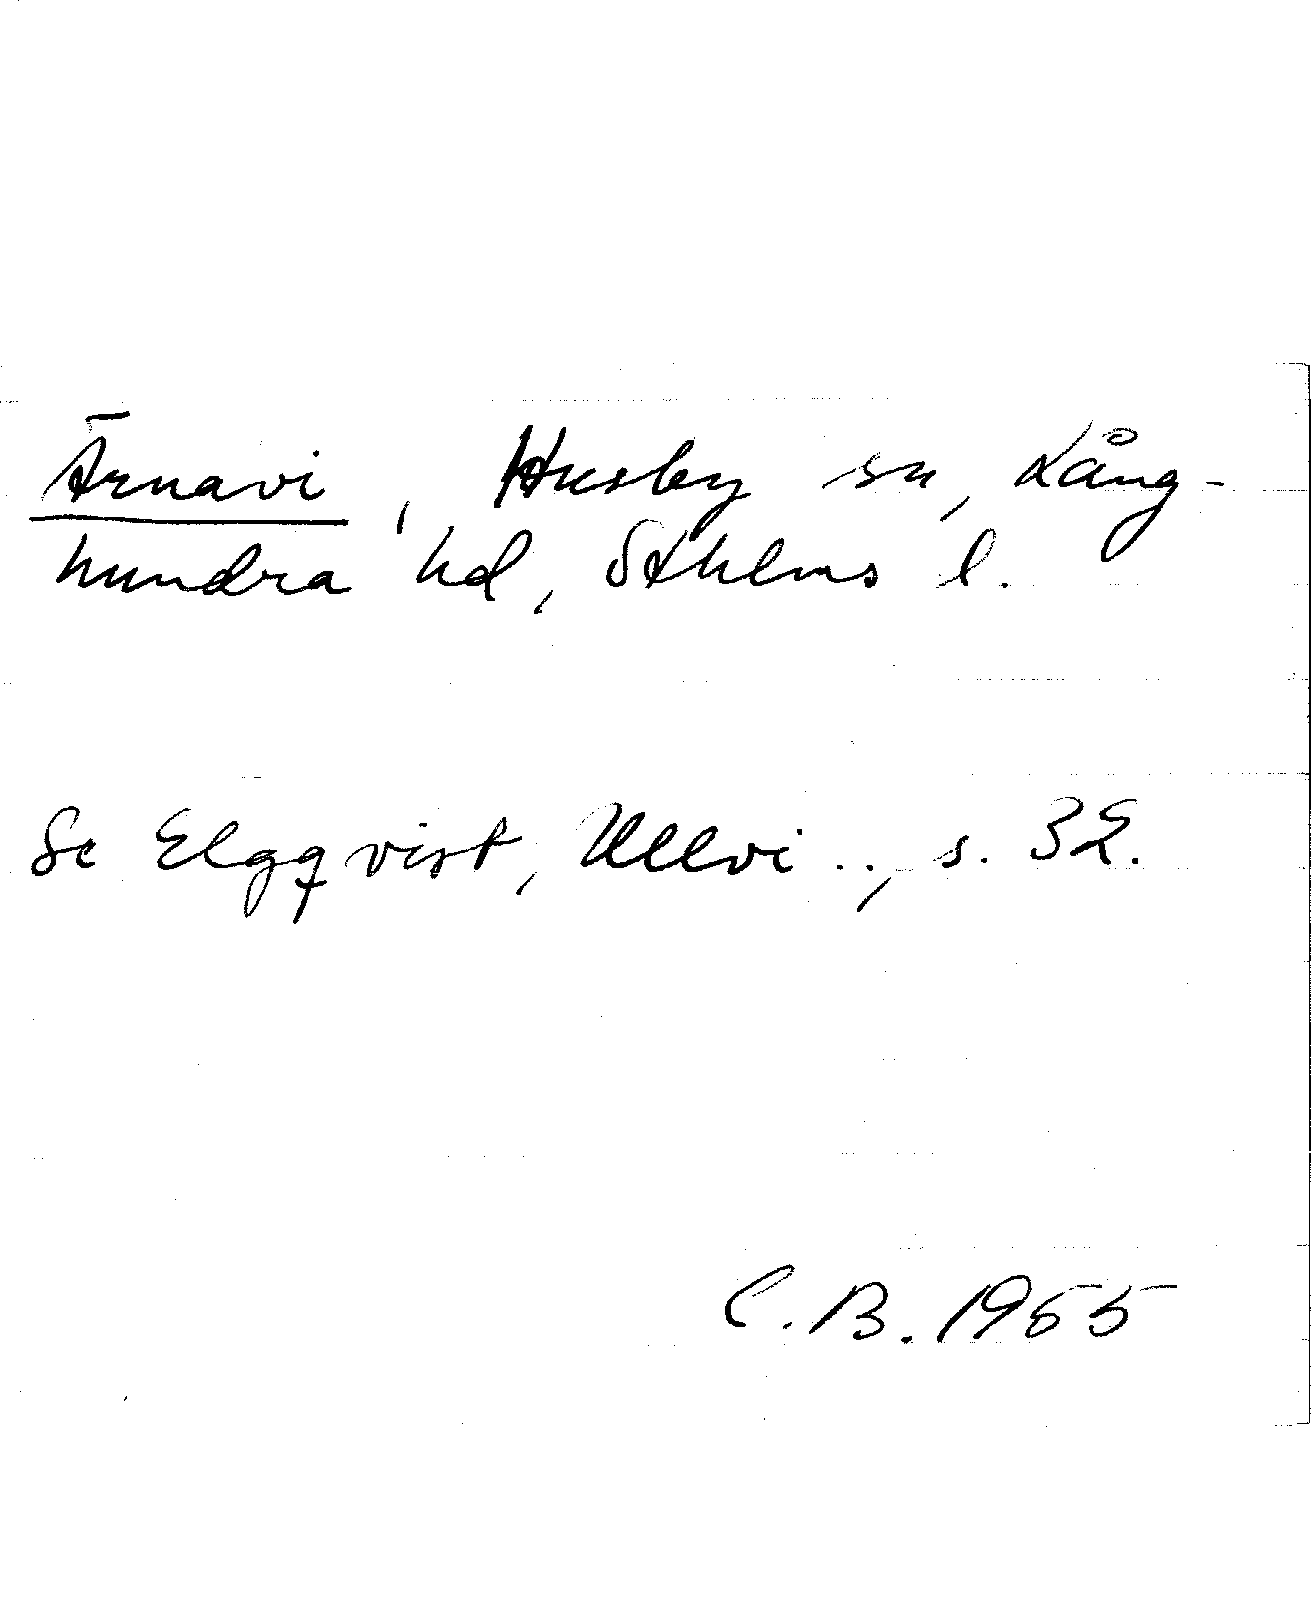 Ärnavi, Husby sn, Lång-
hundra hd, Sthlms l.
Se Elgqvist, Ullvi .., s. 32.
C.B. 1955